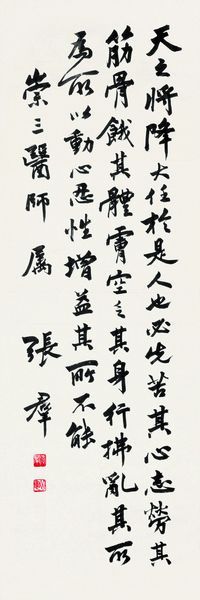 天之將降大任於是人也必先苦其心志勞其
筋骨餓其體膚空乏其身行拂亂其所
為所以動心忍性增益其所不能
崇三醫師属
張群